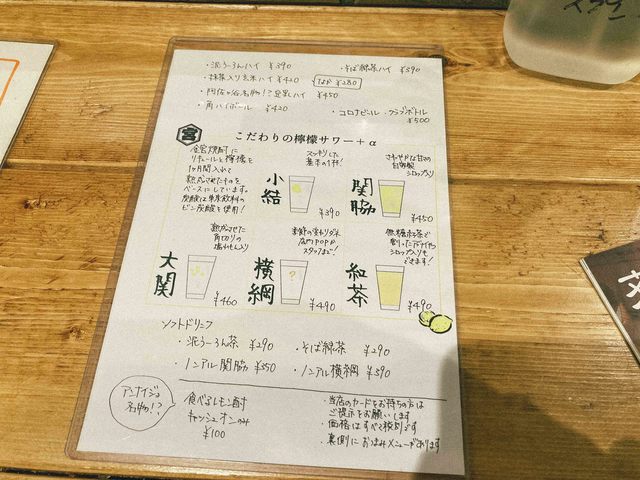 ・泥うーろんハイ ¥390
・そば緑茶ハイ ¥390
・抹茶入り玄米ハイ ¥420
なか ¥280
・阿佐ヶ谷名物!?豆乳ハイ ¥450
・角ハイボール ¥420
・コロナビール・クラブボトル ¥500
宮
こだわりの檸檬サワー+α
金宮焼酎に
リキュールと檸檬を
1ヶ月間入れて
熟成させたモノを
ベースにしています。
炭酸は東京飲料の
ビン炭酸を使用!
小結
スッキリした
基本の1杯!
¥390
関脇
さわやかな甘さの
自家製
シロップ入り
¥450
大関
熟成させた
角切りの
塩れもん入り
¥460
横綱
季節の変わりダネ
店内POPか
スタッフまで!
¥490
紅茶
無糖紅茶で
割ったアイティ
シロップ入りも
できます!
¥490
ソフトドリンク
・泥うーろん茶 ¥290
・そば緑茶 ¥290
・ノンアル関脇 ¥350
・ノンアル横綱 ¥390
アンナイジの
名物!?
食べるレモン酎
キャッシュオンのみ
¥100
・当店のカードをお持ちの方は
ご提示をお願いします
・価格はすべて税別です
・裏側におつまみメニューがあります